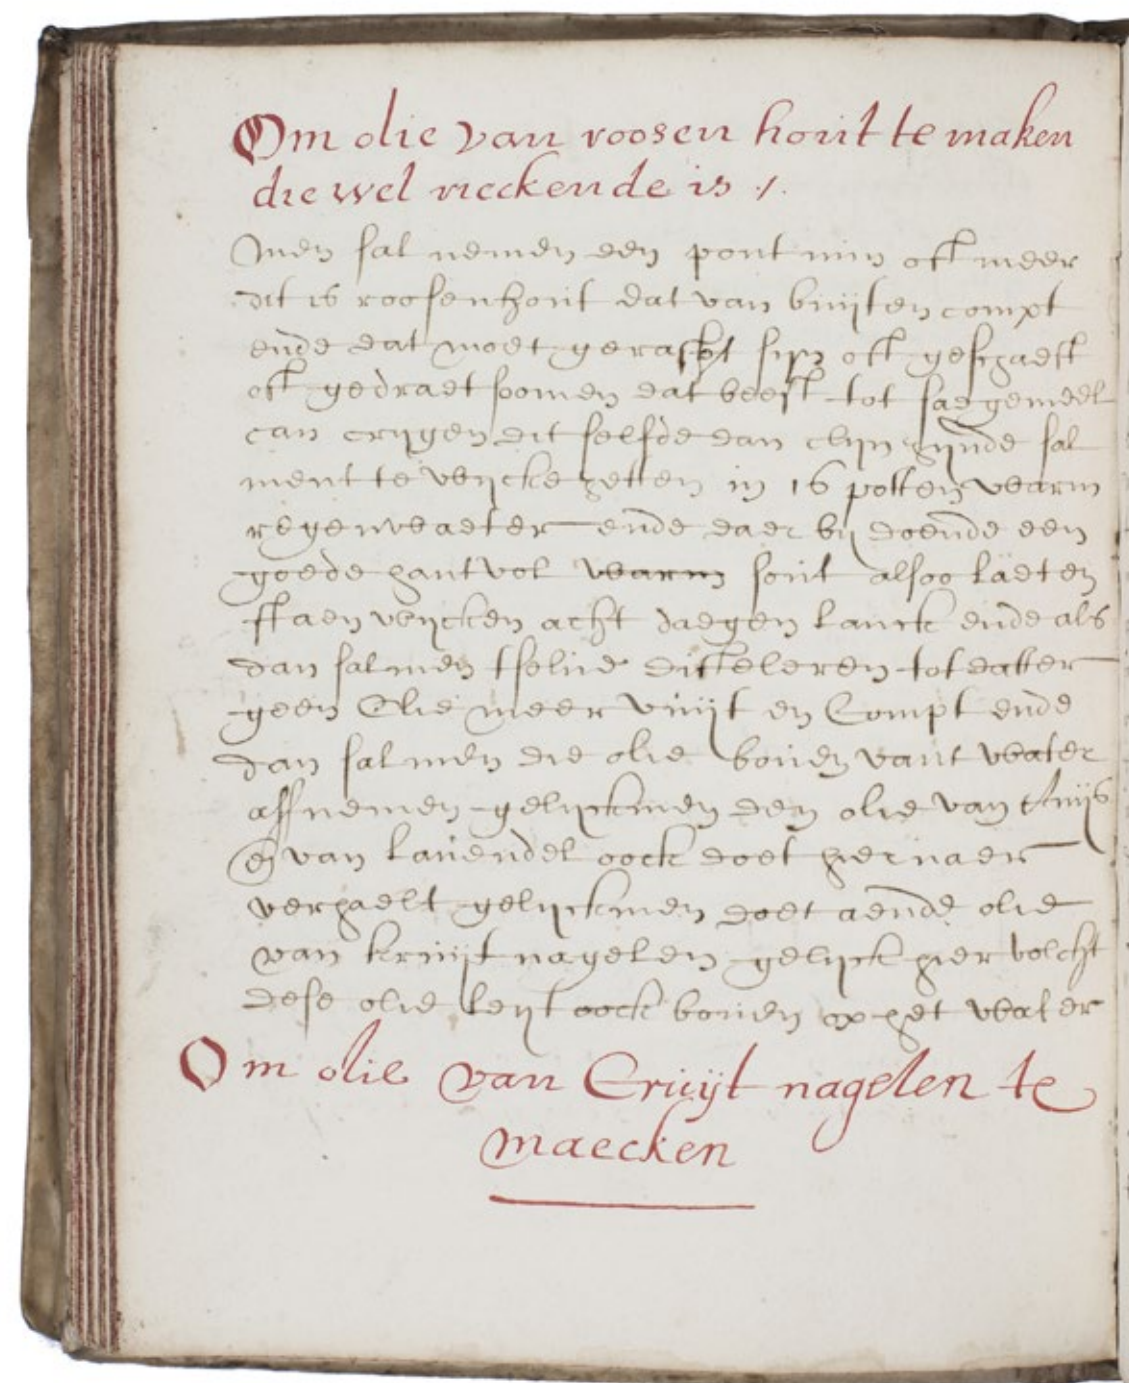 Om olie van roosen hout te maken
die wel rieckende is /.
Men sal nemen een pont min oft meer
dit is roosenhout dat van buijten compt
ende dat moet geraspt sijn oft geschaeft
oft gedraet soomen dat best tot saegemeel
can crijgen dit selfde dan clijn zijnde sal
ment te weijcke zetten in 16 potten warm
regenwaeter ende daer bij doende een
goede hantvol warm sout alsoo laeten
staen weijcken acht daegen lanck ende als
dan salmen tselue disteleren tot datter
geen Olie meer vuijt en Compt ende
dan salmen die olie bouen vant water
affnemen gelijckmen den olie van
en van lauendel oock doet hier naer
verhaelt gelijckmen doet aende olie
van kruijt nagelen gelijck hier volcht
dese olie leijt oock bouen op het water
Om olie van Cruijt nagelen te
maecken